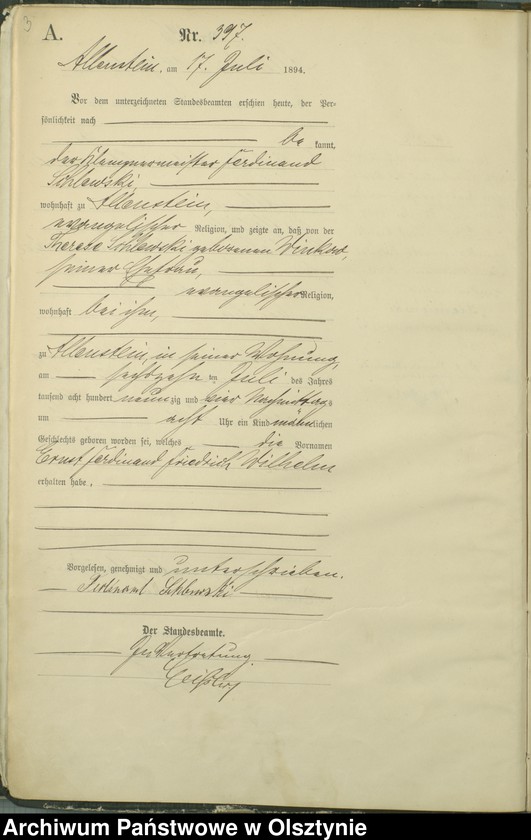 3
A. Nr. 397.
Allenstein, am 17. Juli 1894.
Vor dem unterzeichneten Standesbeamten erschien heute, der Per-
sönlichkeit nach
be kannt,
der Klempnermeister Ferdinand
Schlewski,
wohnhaft zu Allenstein,
evangelischer Religion, und zeigte an, daß von der
Therese Schlewski geborenen
seiner Ehefrau,
evangelischer Religion,
wohnhaft bei ihm,
zu Allenstein, in seiner Wohnung,
am sechszehn ten Juli des Jahres
tausend acht hundert neunzig und vier Nachmittags
um acht Uhr ein Kind männlichen
Geschlechts geboren worden sei, welches die Vornamen
Ernst Ferdinand Friedrich Wilhelm
erhalten habe.
Vorgelesen, genehmigt und unterschrieben.
Ferdinand Schlewski
Der Standesbeamte.
In Vertretung
Archiwum Państwowe w Olsztynie